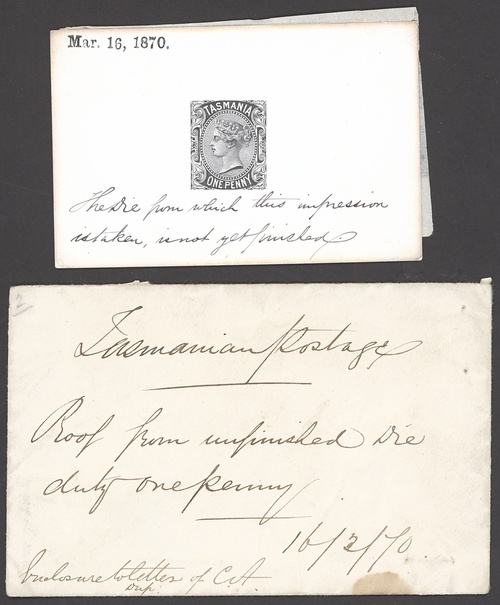 Mar. 16, 1870.
TASMANIA
ONE PENNY
The Die from which this impression
is taken, is not yet finished
2
Tasmanian Postage
Proof from unfinished Die
duty one penny
16/3/70.
Enclosure to letter of C.A.